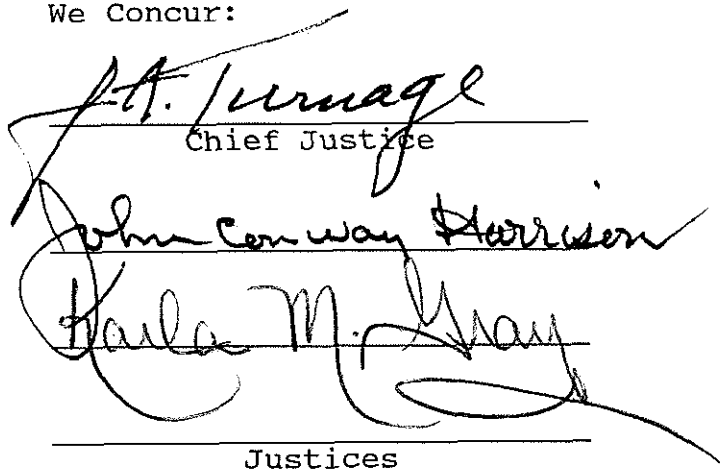 We Concur:
J.A. Turnage
Chief Justice
John Conway Harrison
Karla M. Gray
Justices